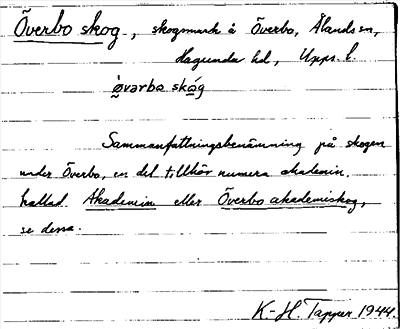 Överbo skog, skogsmark å Överbo, Ålands sn,
Hagunda hd, Upps. l.
övarbo skóg
Sammanfattningsbenämning på skogen
under Överbo, en del tillhör numera akademin,
kallad Akademin eller Överbo akademiskog,
se dessa.
K-H. Tapper 1944.